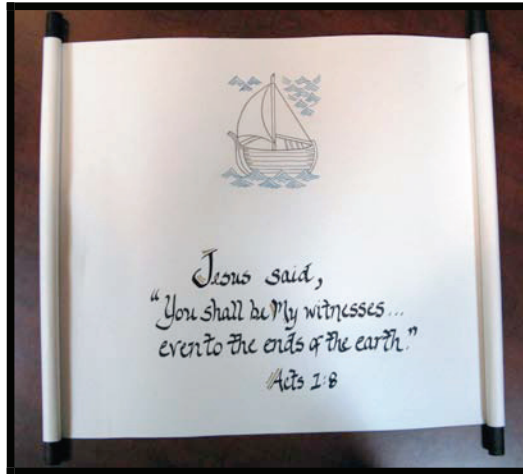 Jesus said,
"You shall be My witnesses...
even to the ends of the earth."
Acts 1:8